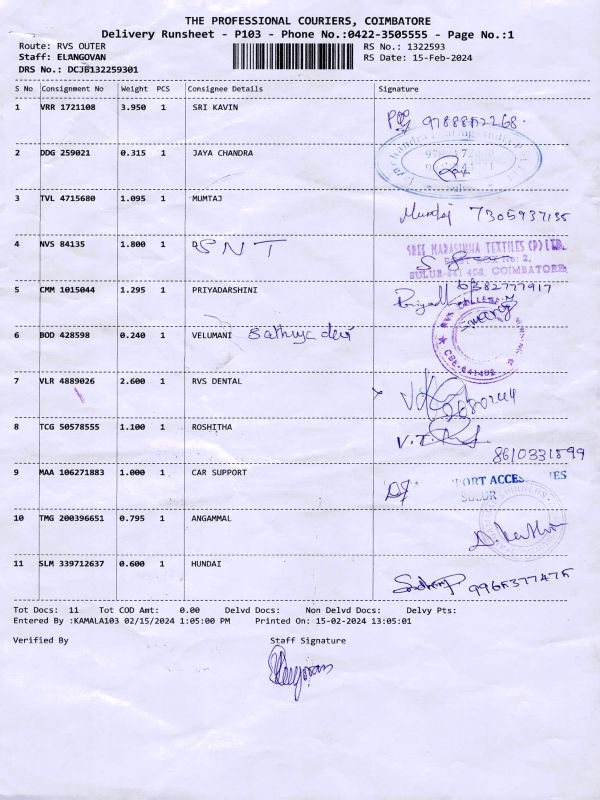 THE PROFESSIONAL COURIERS, COIMBATORE
Delivery Runsheet - P103 - Phone No.:0422-3505555 - Page No.:1
Route: RVS OUTER
RS No.: 1322593
Staff: ELANGOVAN
RS Date: 15-Feb-2024
DRS No.: DCJB132259301
S No Consignment No Weight PCS Consignee Details Signature
1 VRR 1721108 3.950 1 SRI KAVIN
2 DDG 259021 0.315 1 JAYA CHANDRA
3 TVL 4715680 1.095 1 MUMTAJ Mumtaj
4 NVS 84135 1.800 1 SNT
SREE NARASIMHA TEXTILES (P) LTD.
SULUR-641 402, COIMBATORE
5 CMM 1015044 1.295 1 PRIYADARSHINI 6382777917
6 BOD 428598 0.240 1 VELUMANI Sathya devi
CBE-641402
7 VLR 4889026 2.600 1 RVS DENTAL
8 TCG 50578555 1.100 1 ROSHITHA
8610331899
9 MAA 106271883 1.000 1 CAR SUPPORT
SULUR
10 TMG 200396651 0.795 1 ANGAMMAL
11 SLM 339712637 0.600 1 HUNDAI
Tot Docs: 11 Tot COD Amt: 0.00 Delvd Docs: Non Delvd Docs: Delvy Pts:
Entered By :KAMALA103 02/15/2024 1:05:00 PM Printed On: 15-02-2024 13:05:01
Verified By Staff Signature
Elangovan